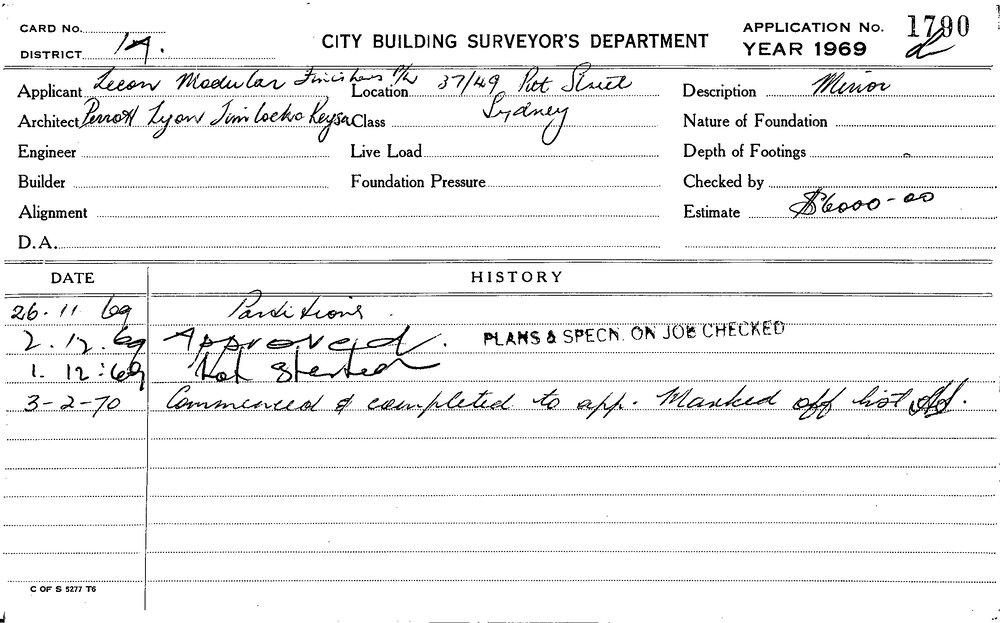 CARD No.
DISTRICT 1A.
CITY BUILDING SURVEYOR'S DEPARTMENT
APPLICATION No. 1790
YEAR 1969
Applicant Lecon Modular P/L
Location 37/49 Pitt Street
Sydney
Description Minor
Architect Perrott Lyon Timlock
Class
Nature of Foundation
Engineer
Live Load
Depth of Footings
Builder
Foundation Pressure
Checked by
Alignment
Estimate $6000-00
D.A.
DATE HISTORY
26.11 69 Partitions.
2.12.69 Approved. PLANS & SPECN. ON JOB CHECKED
1.12:69 Not Started
3-2-70 Commenced & completed to app. Marked off list
C OF S 5277 T6